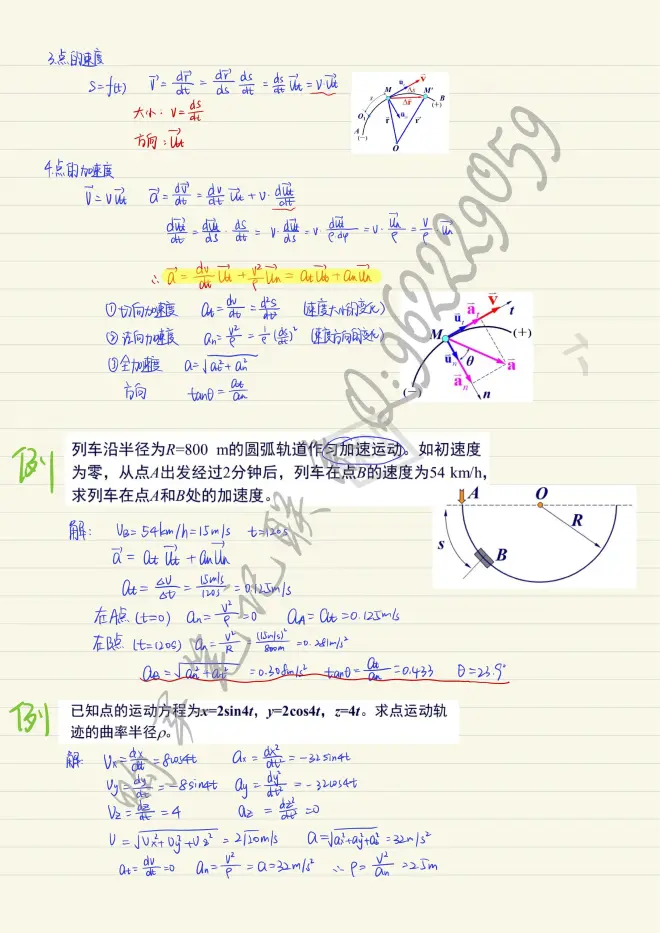 3.点的速度
S=f(t) v⃗ = dr⃗/dt = dr⃗/ds ds/dt = ds/dt u⃗t = v·u⃗t
大小: v= ds/dt
方向: u⃗t
u v
M Δs M' B
(+)
Δr
O₁
r r'
A
(−)
O
4.点的加速度
v⃗ = v u⃗t a⃗ = dv⃗/dt = dv/dt u⃗t + v· du⃗t/dt
du⃗t/dt = du⃗t/ds · ds/dt = v· du⃗t/ds = v· du⃗t/ρdφ = v· u⃗n/ρ = v/ρ u⃗n
∴ a⃗ = dv/dt u⃗t + v²/ρ u⃗n = at u⃗t + an u⃗n
①切向加速度 at = dv/dt = d²s/dt² (速度大小的变化)
②法向加速度 an = v²/ρ = 1/ρ (ds/dt)² (速度方向的变化)
③全加速度 a=√(at²+an²)
方向 tanθ = at/an
a⃗t v⃗ t
u⃗t
M (+)
u⃗n θ a⃗
a⃗n
(−) n
例 列车沿半径为R=800 m的圆弧轨道作匀加速运动。如初速度
为零，从点A出发经过2分钟后，列车在点B的速度为54 km/h，
求列车在点A和B处的加速度。
A O
R
s B
解: VB=54km/h=15m/s t=120s
a⃗ = at u⃗t + an u⃗n
at = Δv/Δt = 15m/s/120s = 0.125m/s
在A点 (t=0) an = v²/ρ =0 aA = at =0.125m/s
在B点 (t=120s) an = v²/R = (15m/s)²/800m =0.281m/s²
aB=√(an²+at²) =0.308m/s² tanθ= at/an =0.433 θ=23.9°
例 已知点的运动方程为x=2sin4t，y=2cos4t，z=4t。求点运动轨
迹的曲率半径ρ。
解 Vx= dx/dt =8cos4t ax= dx²/dt² =-32sin4t
Vy= dy/dt =-8sin4t ay= dy²/dt² =-32cos4t
Vz= dz/dt =4 az = dz²/dt² =0
V=√(Vx²+Vy²+Vz²) =2√20m/s a=√(ax²+ay²+az²) =32m/s²
at= dv/dt =0 an= v²/ρ =a=32m/s² ∴ρ= v²/an =2.5m
Q:962229059